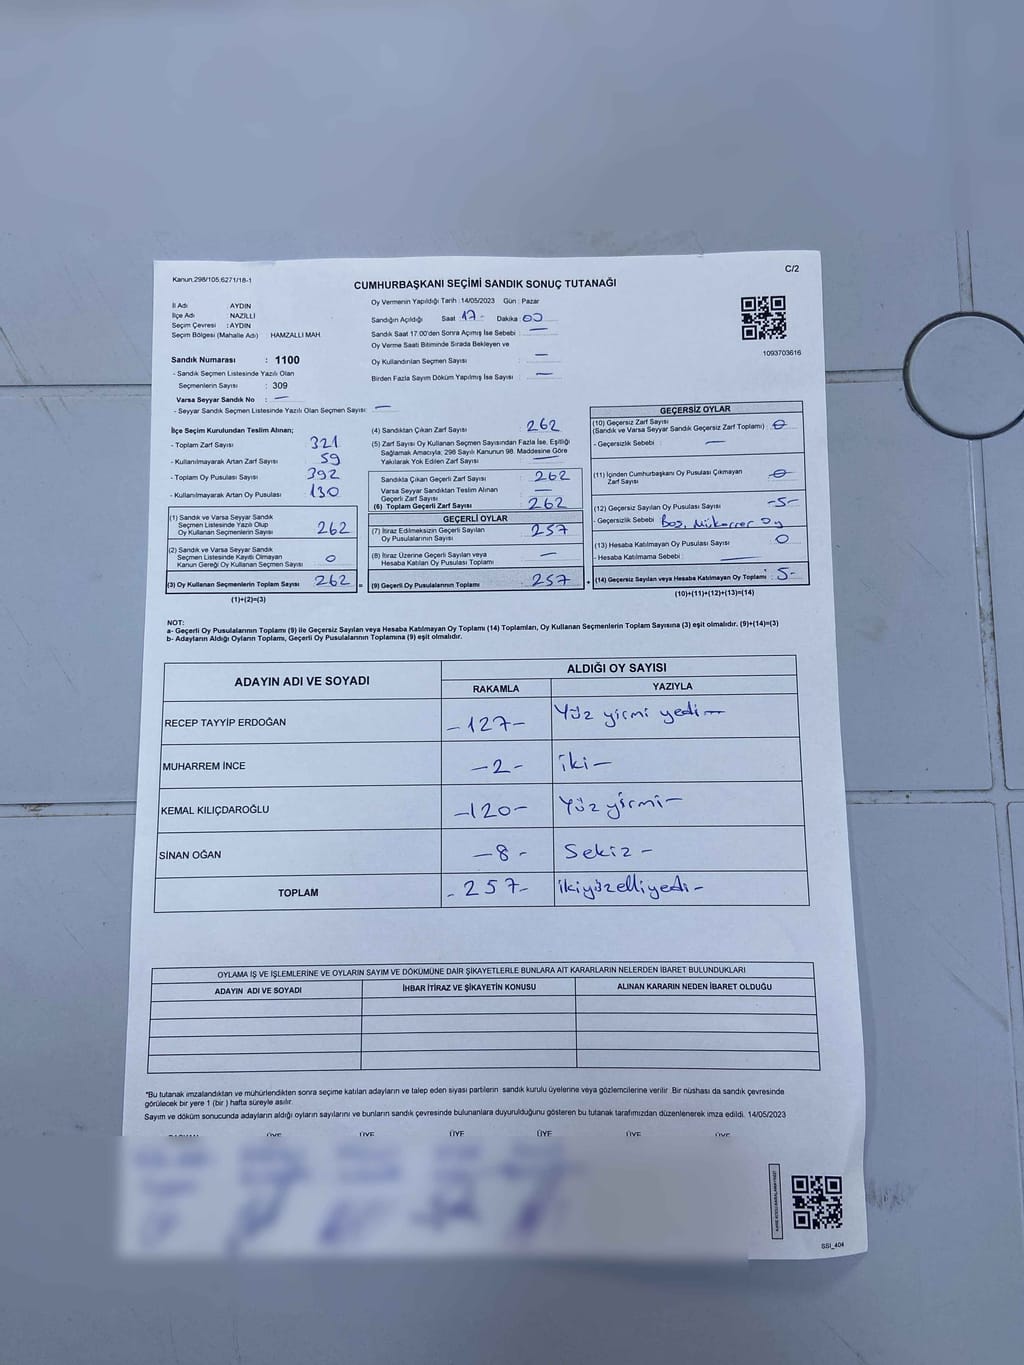 Kanun.298/105,6271/18-1
C/2
CUMHURBAŞKANI SEÇİMİ SANDIK SONUÇ TUTANAĞI
İl Adı : AYDIN
İlçe Adı : NAZİLLİ
Seçim Çevresi : AYDIN
Seçim Bölgesi (Mahalle Adı) HAMZALLI MAH
Sandık Numarası : 1100
- Sandık Seçmen Listesinde Yazılı Olan
Seçmenlerin Sayısı : 309
Varsa Seyyar Sandık No : —
- Seyyar Sandık Seçmen Listesinde Yazılı Olan Seçmen Sayısı : —
Oy Vermenin Yapıldığı Tarih : 14/05/2023 Gün : Pazar
Sandığın Açıldığı Saat 17- Dakika 00
Sandık Saat 17.00'den Sonra Açımış İse Sebebi : —
Oy Verme Saati Bitiminde Sırada Bekleyen ve
Oy Kullandırılan Seçmen Sayısı : —
Birden Fazla Sayım Döküm Yapılmış İse Sayısı : —
1093703616
İlçe Seçim Kurulundan Teslim Alınan;
- Toplam Zarf Sayısı 321
- Kullanılmayarak Artan Zarf Sayısı 59
- Toplam Oy Pusulası Sayısı 392
- Kullanılmayarak Artan Oy Pusulası 130
(1) Sandık ve Varsa Seyyar Sandık
Seçmen Listesinde Yazılı Olup
Oy Kullanan Seçmenlerin Sayısı 262
(2) Sandık ve Varsa Seyyar Sandık
Seçmen Listesinde Kayıtlı Olmayan
Kanun Gereği Oy Kullanan Seçmen Sayısı 0
(3) Oy Kullanan Seçmenlerin Toplam Sayısı 262 =
(1)+(2)=(3)
(4) Sandıktan Çıkan Zarf Sayısı : 262
(5) Zarf Sayısı Oy Kullanan Seçmen Sayısından Fazla İse, Eşitliği
Sağlamak Amacıyla; 298 Sayılı Kanunun 98. Maddesine Göre
Yakılarak Yok Edilen Zarf Sayısı : —
Sandıkta Çıkan Geçerli Zarf Sayısı : 262
Varsa Seyyar Sandıktan Teslim Alınan
Geçerli Zarf Sayısı : —
(6) Toplam Geçerli Zarf Sayısı : 262
GEÇERLİ OYLAR
(7) İtiraz Edilmeksizin Geçerli Sayılan
Oy Pusulalarının Sayısı : 257
(8) İtiraz Üzerine Geçerli Sayılan veya
Hesaba Katılan Oy Pusulası Toplamı : —
(9) Geçerli Oy Pusulalarının Toplamı : 257 +
GEÇERSİZ OYLAR
(10) Geçersiz Zarf Sayısı
(Sandık ve Varsa Seyyar Sandık Geçersiz Zarf Toplamı) : 0
- Geçersizlik Sebebi : —
(11) İçinden Cumhurbaşkanı Oy Pusulası Çıkmayan
Zarf Sayısı : 0
(12) Geçersiz Sayılan Oy Pusulası Sayısı : -5-
- Geçersizlik Sebebi Boş, Mükerrer Oy
(13) Hesaba Katılmayan Oy Pusulası Sayısı : 0
- Hesaba Katılmama Sebebi : —
(14) Geçersiz Sayılan veya Hesaba Katılmayan Oy Toplamı : 5-
(10)+(11)+(12)+(13)=(14)
NOT:
a- Geçerli Oy Pusulalarının Toplamı (9) ile Geçersiz Sayılan veya Hesaba Katılmayan Oy Toplamı (14) Toplamları, Oy Kullanan Seçmenlerin Toplam Sayısına (3) eşit olmalıdır. (9)+(14)=(3)
b- Adayların Aldığı Oyların Toplamı, Geçerli Oy Pusulalarının Toplamına (9) eşit olmalıdır.
ADAYIN ADI VE SOYADI
ALDIĞI OY SAYISI
RAKAMLA YAZIYLA
RECEP TAYYİP ERDOĞAN -127- Yüz yirmi yedi —
MUHARREM İNCE -2- iki —
KEMAL KILIÇDAROĞLU -120- Yüz yirmi —
SİNAN OĞAN -8- Sekiz -
TOPLAM -257- ikiyüzelliyedi -
OYLAMA İŞ VE İŞLEMLERİNE VE OYLARIN SAYIM VE DÖKÜMÜNE DAİR ŞİKAYETLERLE BUNLARA AİT KARARLARIN NELERDEN İBARET BULUNDUKLARI
ADAYIN ADI VE SOYADI İHBAR İTİRAZ VE ŞİKAYETİN KONUSU ALINAN KARARIN NEDEN İBARET OLDUĞU
*Bu tutanak imzalandıktan ve mühürlendikten sonra seçime katılan adayların ve talep eden siyasi partilerin sandık kurulu üyelerine veya gözlemcilerine verilir. Bir nüshası da sandık çevresinde
görülecek bir yere 1 (bir ) hafta süreyle asılır.
Sayım ve döküm sonucunda adayların aldığı oyların sayılarını ve bunların sandık çevresinde bulunanlara duyurulduğunu gösteren bu tutanak tarafımızdan düzenlenerek imza edildi. 14/05/2023
ÜYE ÜYE ÜYE ÜYE ÜYE ÜYE
SSI_404